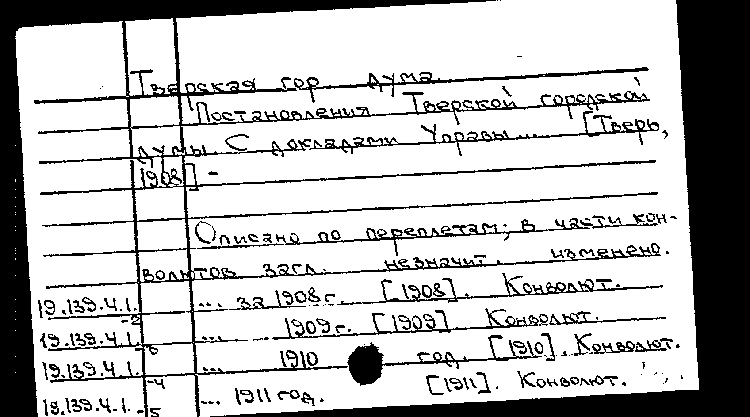 Тверская гор дума.
Постановления Тверской городской
думы С докладами Управы... [Тверь,
1908] -
Описано по переплетам; в части кон-
волютов загл. незначит. изменено.
19.139.4.1. ... за 1908 г. [1908]. Конволют.
-2
19.139.4.1. ... 1909 г. [1909] Конволют.
19.139.4.1. ... 1910 год. [1910]. Конволют.
-4
19.139.4.1. ... 1911 год. [1911]. Конволют.
-5